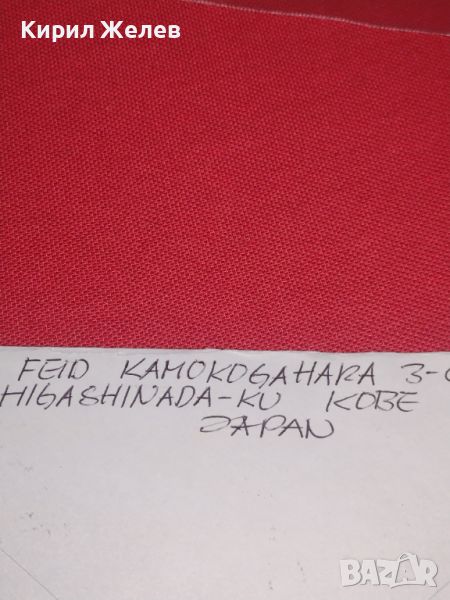 Кирил Желев
FEID KAMOKOGAHARA 3-
HIGASHINADA-KU KOBE
JAPAN
BAZAR